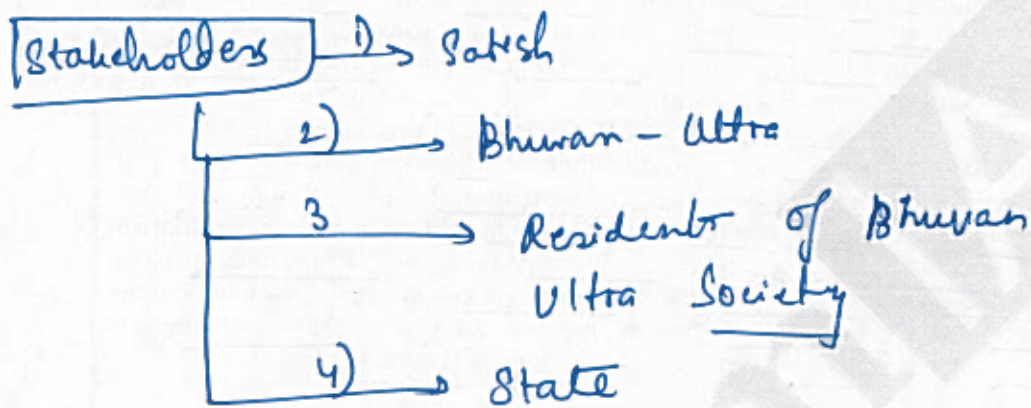 Stakeholders 1) Satish
2) Bhuvan - Ultra
3 Residents of Bhuvan
Ultra Society
4) State